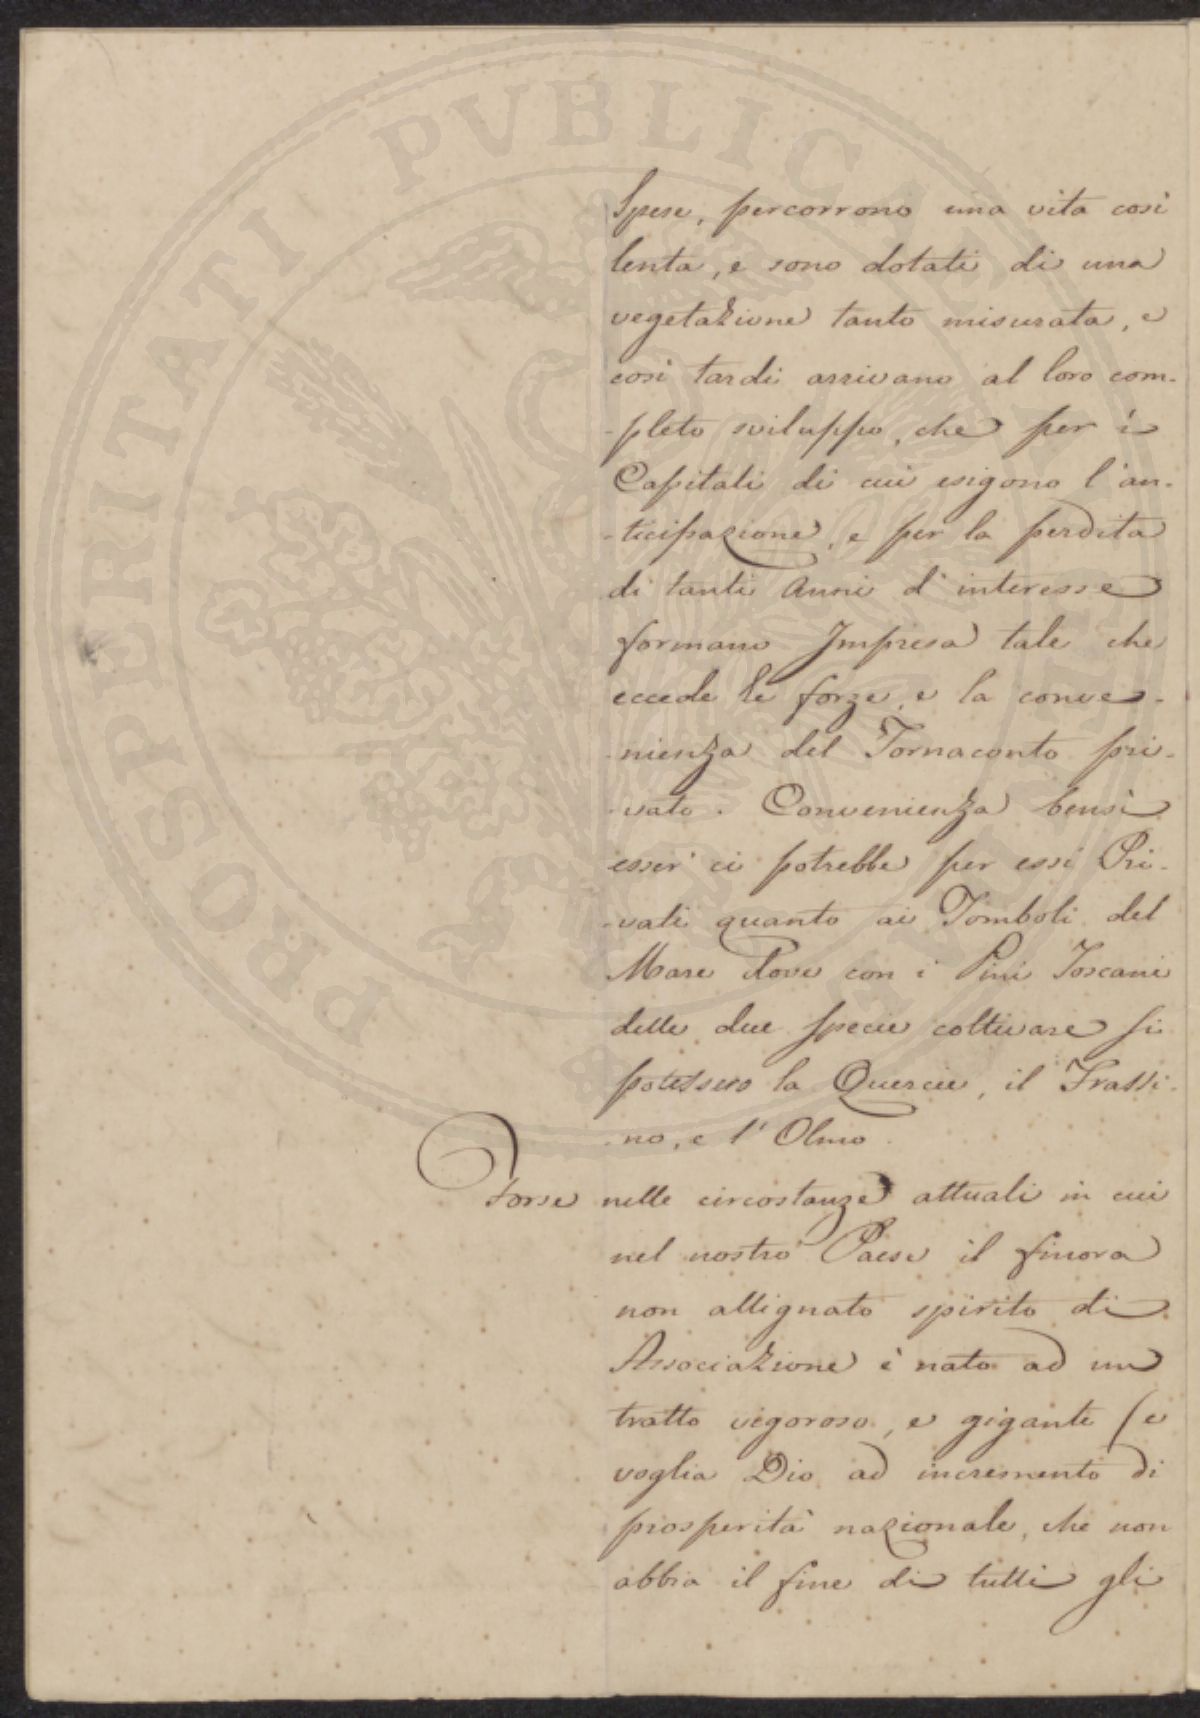 PROSPERITATI PVBLICAE
Spese, percorrono una vita così
lenta, e sono dotati di una
vegetazione tanto misurata, e
così tardi arrivano al loro com-
-pleto sviluppo, che per i
Capitali di cui esigono l'an-
-ticipazione, e per la perdita
di tanti Anni d'interesse
formano Impresa tale che
eccede le forze, e la conve-
-nienza del Tornaconto pri-
-vato. Convenienza bensì
esser ci potrebbe per essi Pri-
-vati quanto ai Tomboli del
Mare dove con i Pini Toscani
delle due specie coltivare si
potessero la Quercie, il Frassi-
-no, e l'Olmo.
Forse nelle circostanze attuali in cui
nel nostro Paese il finora
non allignato spirito di
Associazione è nato ad un
tratto vigoroso, e gigante (e
voglia Dio ad incremento di
prosperità nazionale, che non
abbia il fine di tutti gli